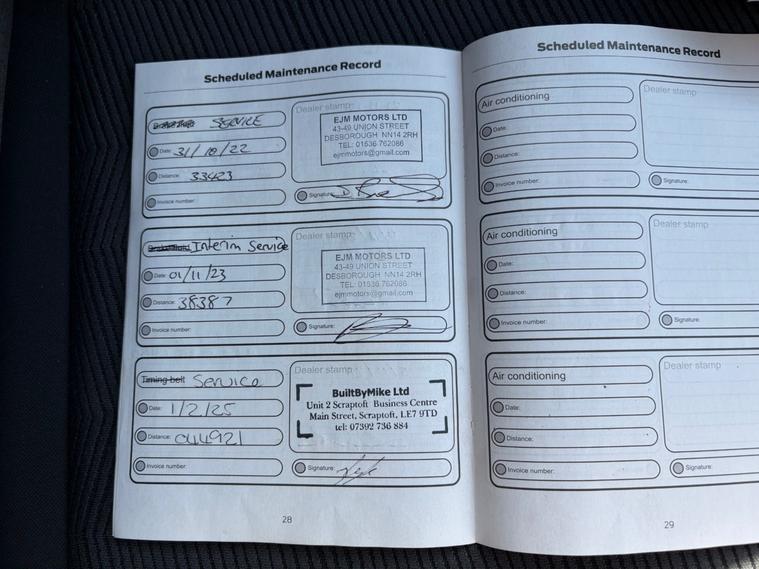 Scheduled Maintenance Record
SERVICE
Date: 31/10/22
Distance: 33423
Invoice number:
Dealer stamp:
EJM MOTORS LTD
43-49 UNION STREET
DESBOROUGH NN14 2RH
TEL: 01536 762086
ejmmotors@gmail.com
Signature:
Brake fluid Interim Service
Date: 01/11/23
Distance: 38387
Invoice number:
Dealer stamp:
EJM MOTORS LTD
43-49 UNION STREET
DESBOROUGH NN14 2RH
TEL: 01536 762086
ejmmotors@gmail.com
Signature:
Timing belt Service
Date: 1/2/25
Distance: 044921
Invoice number:
Dealer stamp:
BuiltByMike Ltd
Unit 2 Scraptoft Business Centre
Main Street, Scraptoft, LE7 9TD
tel: 07392 736 884
Signature:
28
Scheduled Maintenance Record
Air conditioning
Date:
Distance:
Invoice number:
Dealer stamp:
Signature:
Air conditioning
Date:
Distance:
Invoice number:
Dealer stamp:
Signature:
Air conditioning
Date:
Distance:
Invoice number:
Dealer stamp:
Signature:
29